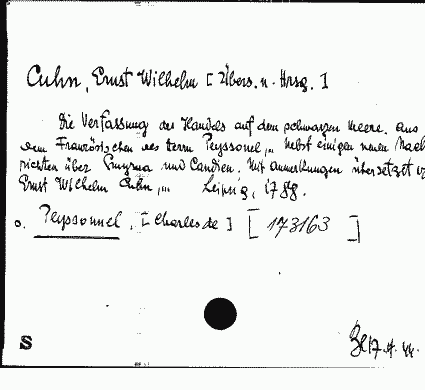 Cuhn, Ernst Wilhelm [Übers. u. Hrsg.]
Die Verfassung des Handels auf dem schwarzen Meere. Aus
dem Französischen des Herrn Peyssonel,,, Nebst einigen neuen Nach
richten über Smyrna und Candien. Mit Anmerkungen übersetzet v
Ernst Wilhelm Cuhn,,, Leipzig, 1788.
o. Peyssonnel, [Charles de] [173163]
S